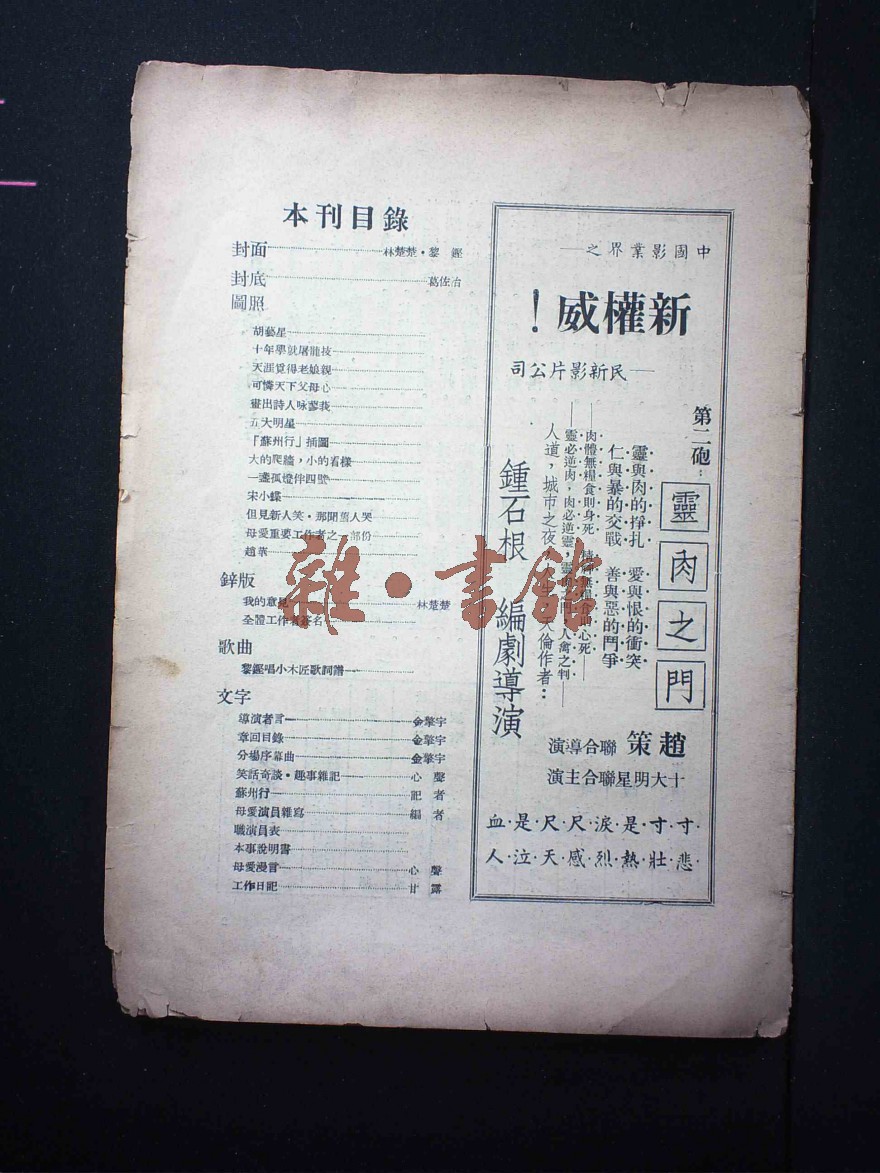 中國影業界之—
新權威！
—民新影片公司
第二砲：
靈肉之門
靈與肉的掙扎　愛與恨的衝突
仁與暴的交戰　善與惡的鬥爭
—肉體無糧食則身死
心死—
—靈必逆肉，肉必逆靈，
人禽之判—
人道，城市之夜，
倫作者：
鍾石根　編劇導演
趙策　聯合導演
十大明星聯合主演
寸·寸·是·淚·尺·尺·是·血
悲·壯·熱·烈·感·天·泣·人
本刊目錄
封面 林楚楚·黎鏗
封底 葛佐治
圖照
胡藝星
十年學就屠龍技
天涯覓得老娘親
可憐天下父母心
畫出詩人咏蓼莪
五大明星
「蘇州行」插圖
大的爬牆，小的看樣
一盞孤燈伴四壁
宋小蝶
但見新人笑·那聞舊人哭
母愛重要工作者之一部份
趙華
鋅版
我的意見 林楚楚
全體工作者簽名
歌曲
黎鏗唱小木匠歌詞譜
文字
導演者言 金擎宇
章回目錄 金擎宇
分場序幕曲 金擎宇
笑話奇談·趣事雜記 心聲
蘇州行 記者
母愛演員雜寫 編者
職演員表
本事說明書
母愛漫言 心聲
工作日記 甘露
雜·書館